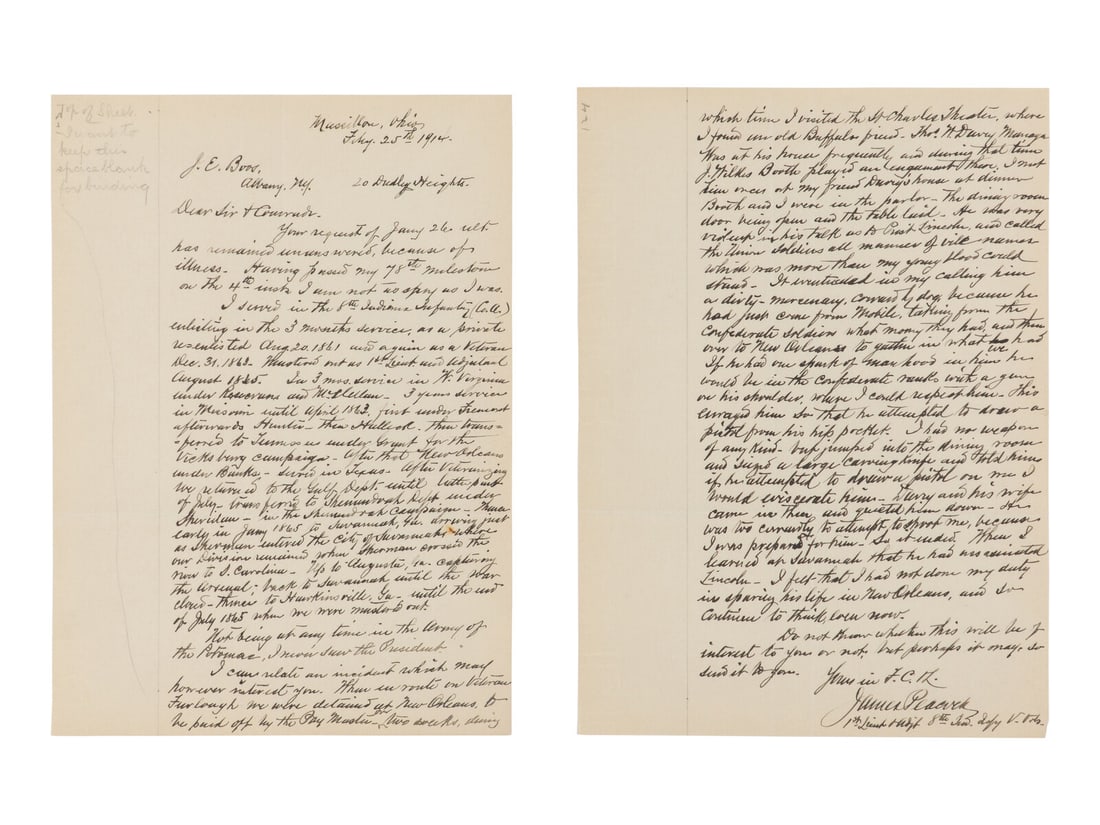 Top of Sheet.
I want to
keep this
space blank
for binding
Massillon, Ohio,
Feby. 25th 1914.
J. E. Boos,
Albany, NY. 20 Dudley Heights.
Dear Sir & Comrade.
Your request of Jany 26 ult
has remained unanswered, because of
illness. Having passed my 78th milestone
on the 4th inst. I am not as spry as I was.
I served in the 8th Indiana Infantry (Co. A.)
enlisting in the 3 months service, as a private
reenlisted Aug. 20. 1861 and again as a Veteran
Dec. 31. 1863. Mustered out as 1st Lieut. and Adjutant
August 1865. In 3 mos. service in W. Virginia
under Rosecrans and McClellan. 3 years service
in Missouri until April 1863, first under Fremont
afterwards Hunter - then Halleck, then trans-
-ferred to under Grant for the
Vicksburg campaign - After that New Orleans
under Banks - served in Texas - After Veteranizing
we returned to the Gulf Dept. until latter part
of July - transferred to Shenandoah Dept under
Sheridan - in the Shenandoah Campaign - Thence
early in Jany 1865 to Savannah, Ga. arriving just
as Sherman entered the city of Savannah where
our Division remained when Sherman crossed the
river to S. Carolina - Up to Augusta, Ga. capturing
the Arsenal; back to Savannah until the War
closed - thence to Hawkinsville, Ga - until the end
of July 1865 when we were mustered out.
Not being at any time in the Army of
the Potomac, I never saw the President.
I can relate an incident which may
however interest you. When in route on Veteran
Furlough we were detained at New Orleans, to
be paid off by the Pay Master two weeks, during
which time I visited the St Charles Theater, where
I found an old Buffalo friend. Thos. W. Davey, Manager
Was at his house frequently, and during that time
J. Wilkes Booth played an engagement there. I met
him once at my friend Davey's house at dinner
Booth and I were in the parlor - The dining room
door being open and the table laid - He was very
in his talk as to Prest. Lincoln, and called
the Union Soldiers all manner of vile names
which was more than my young blood could
stand - It eventuated in my calling him
a dirty - mercenary, cowardly dog, because he
had just come from Mobile, taking from the
Confederate soldiers what money they had, and then
over to New Orleans to gather in what we had
If he had one spark of man hood in him he
would be in the Confederate ranks with a gun
on his shoulder, where I could respect him - This
enraged him so that he attempted to draw a
pistol from his hip pocket. I had no weapon
of any kind - but jumped into the dining room
and seized a large carving knife and told him
if he attempted to draw a pistol on me I
would eviscerate him - Davey and his wife
came in then, and quieted him down - He
was too cowardly to attempt to shoot me, because
I was prepared for him - So it ended. When I
learned at Savannah that he had assassinated
Lincoln - I felt that I had not done my duty
in sparing his life in New Orleans, and so
continue to think, even now.
Do not know whether this will be of
interest to you or not, but perhaps it may, so
send it to you. Yours in F. C. & L.
James Peacock
1st Lieut & Adjt 8th Ind. Infy V. Vols.